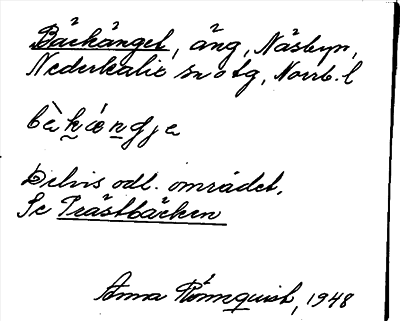 Bäckänget, äng, Näsbyn,
Nederkalix sn o tg, Norrb. l
bὲkæŋgje
Delvis odl. området.
Se Prästbäcken
Anna Rönnquist, 1948